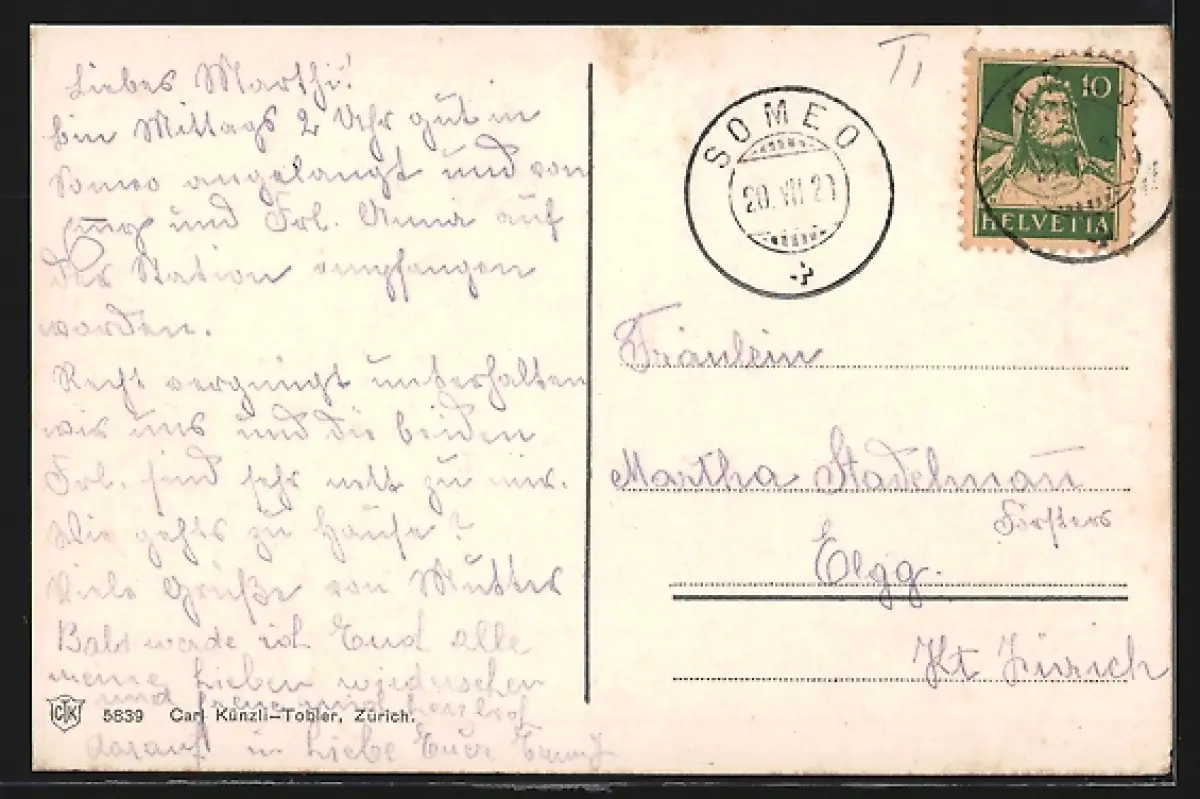 Liebes Marthi!
bin Mittags 2 Uhr gut in
Someo angelangt und von
und Frl. Anna auf
der Station empfangen
worden.
Recht vergnügt unterhalten
wir uns und die beiden
Frl. sind sehr nett zu mir.
Wie gehts zu Hause?
Viele Grüße von Mutter
Bald werde ich Euch alle
meine Lieben wiedersehen
und freue mich herzlich
darauf in Liebe Euer
CKT 5839 Carl Künzli-Tobler, Zürich.
SOMEO
20.VII.21
10
HELVETIA
Fräulein
Martha Stadelmann
Försters
Elgg.
Kt Zürich